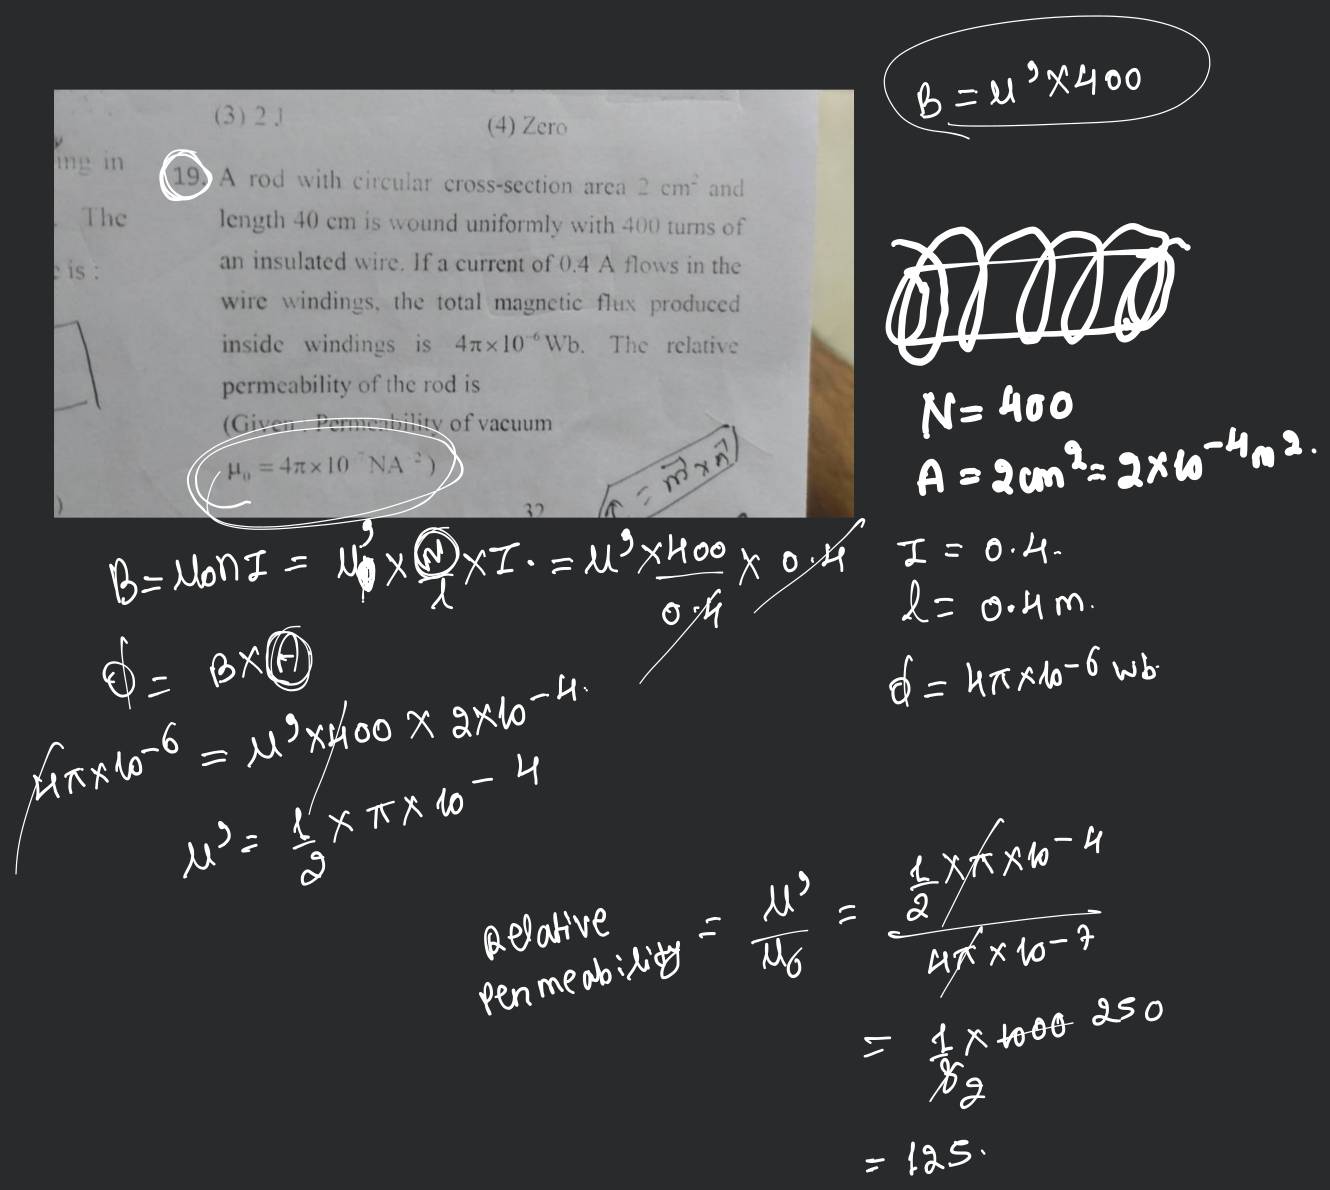 B = μ' × 400
(3) 2 J
(4) Zero
ing in
19. A rod with circular cross-section area 2 cm² and
The
length 40 cm is wound uniformly with 400 turns of
is :
an insulated wire. If a current of 0.4 A flows in the
wire windings, the total magnetic flux produced
inside windings is 4π×10⁻⁶ Wb. The relative
permeability of the rod is
(Given : Permeability of vacuum
μ₀ = 4π×10⁻⁷ NA⁻²)
32
= m⃗ × n⃗
N = 400
A = 2cm² = 2×10⁻⁴m².
I = 0.4.
l = 0.4 m.
ϕ = 4π×10⁻⁶ wb.
B = μ₀nI = μ' × N/l × I. = μ' × 400/0.4 × 0.4
ϕ = B × A
4π×10⁻⁶ = μ' × 400 × 2×10⁻⁴.
μ' = 1/2 × π × 10⁻⁴
Relative
permeability = μ'/μ₀ = 1/2 × π × 10⁻⁴ / 4π × 10⁻⁷
= 1/8 2 × 1000 250
= 125.